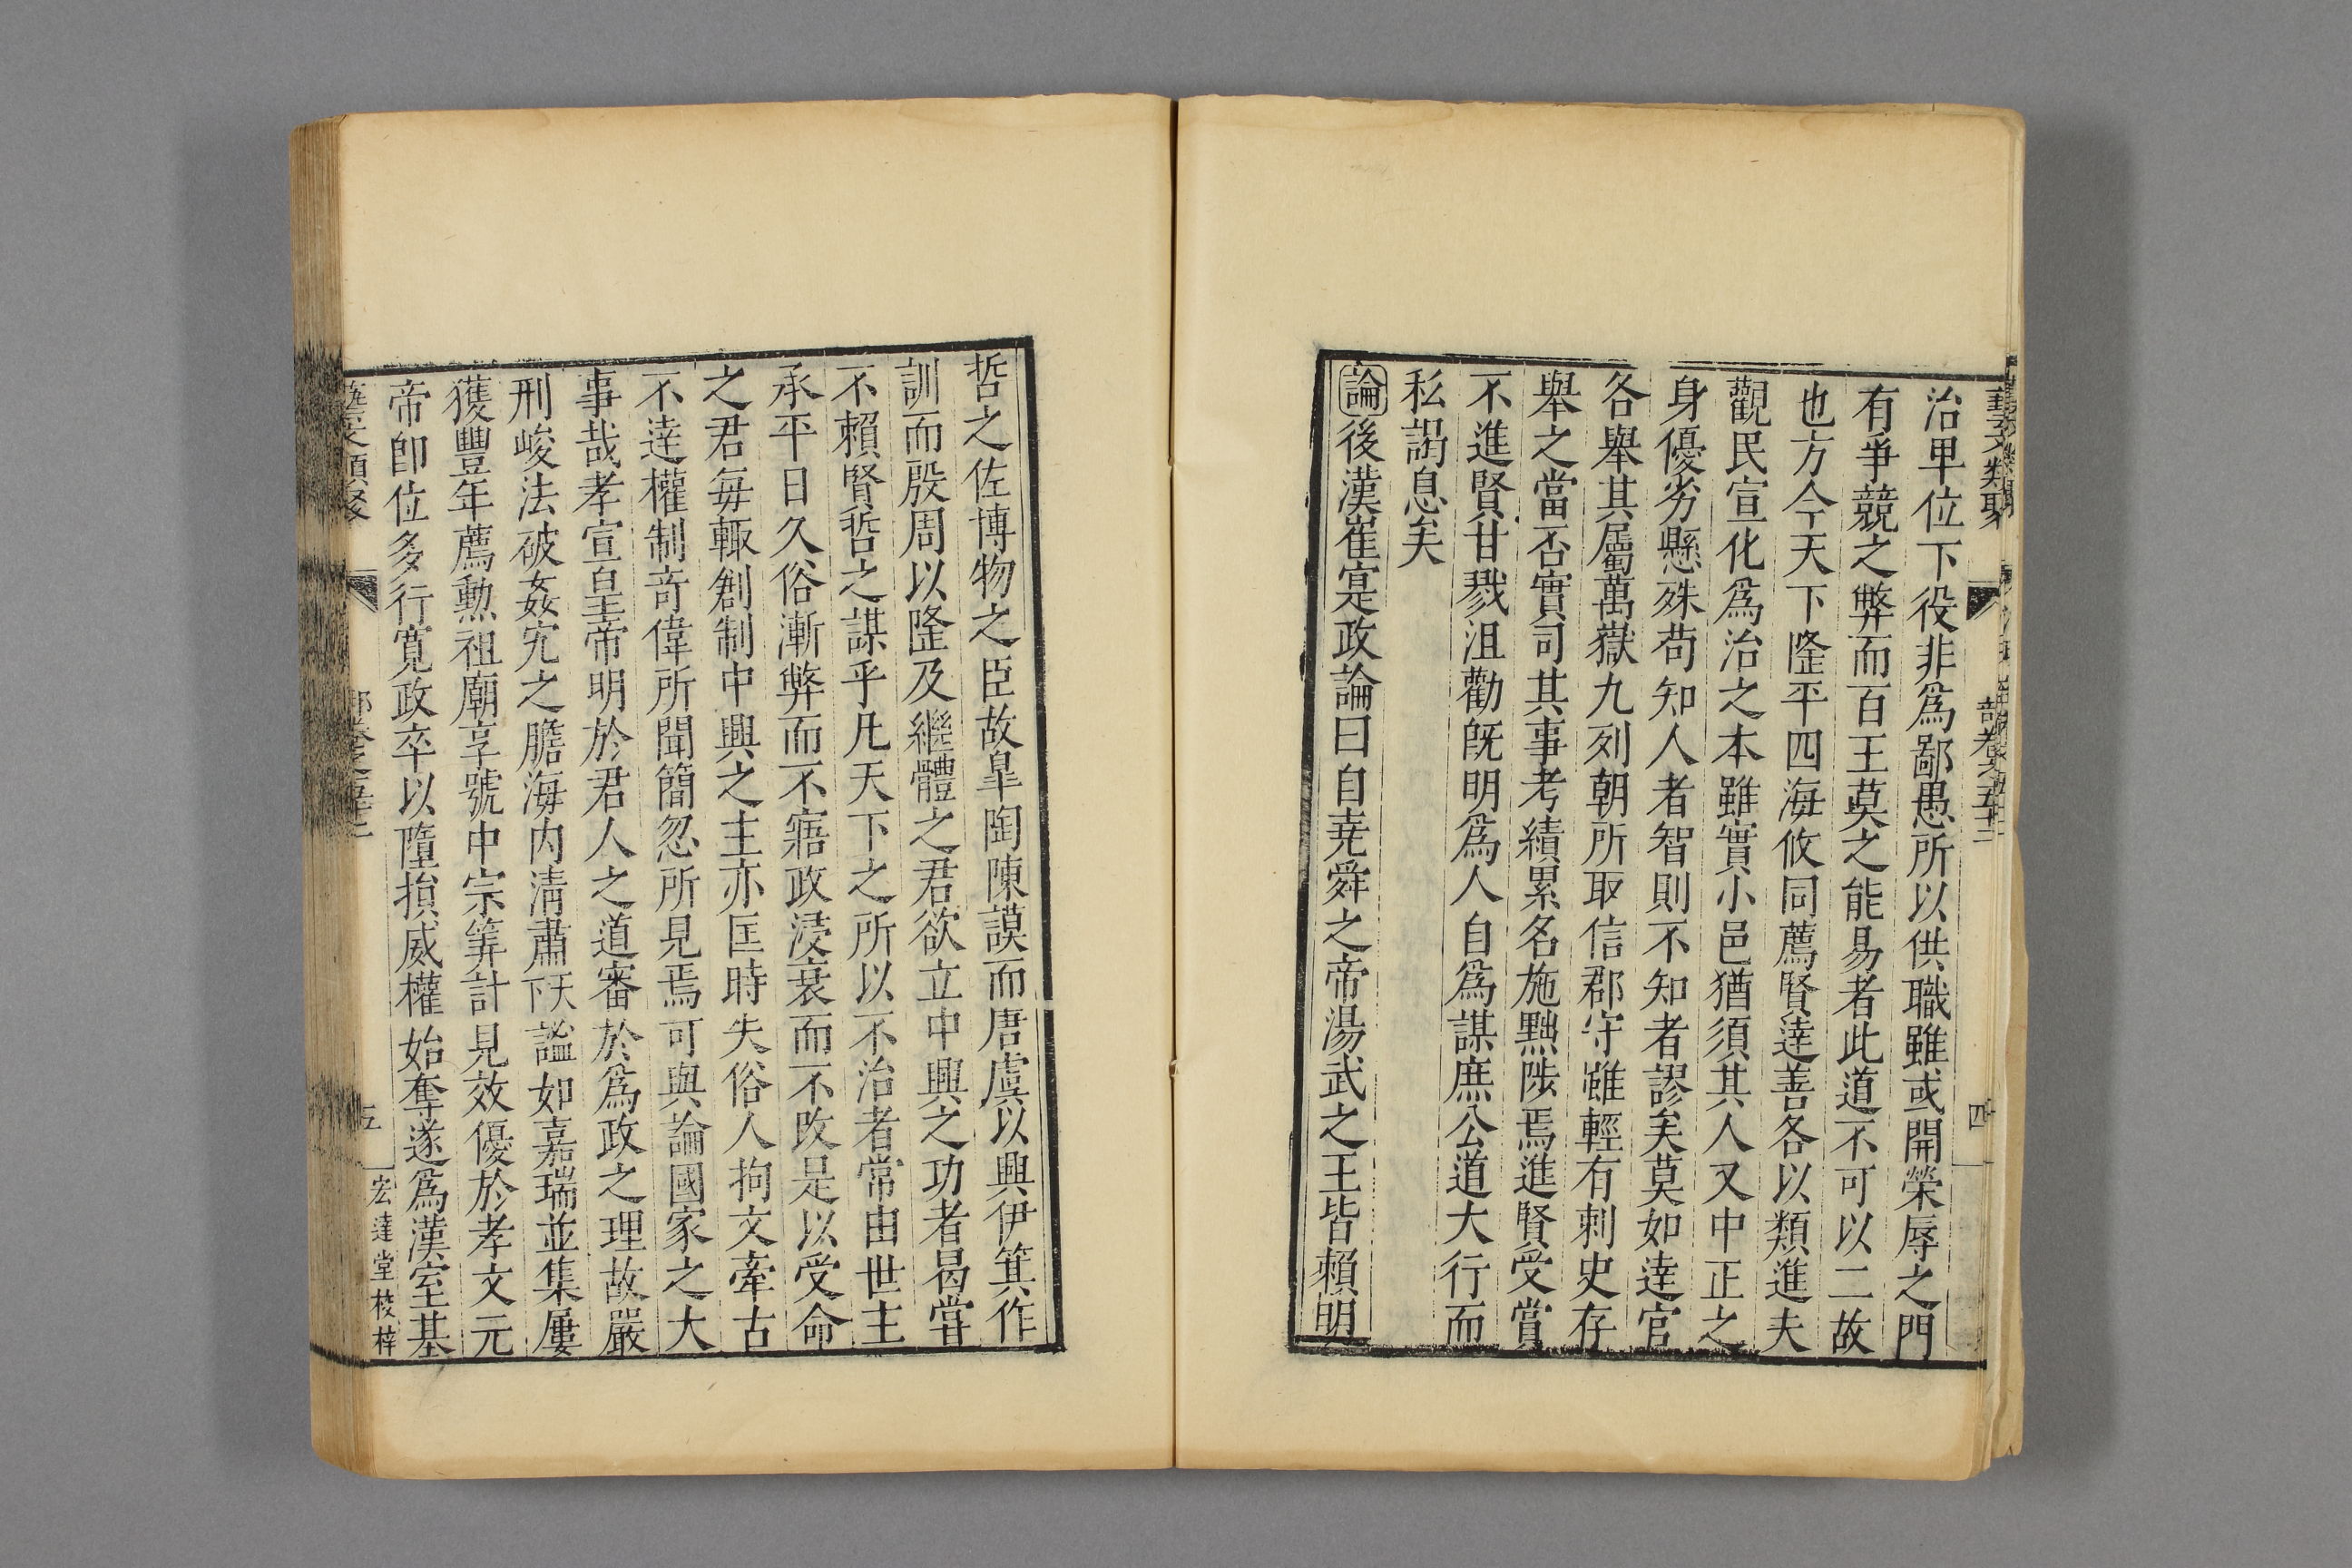 治卑位下役非爲鄙愚所以供職雖或開榮辱之門
有爭競之弊而百王莫之能易者此道不可以二故
也方今天下隆平四海攸同薦賢達善各以類進夫
觀民宣化爲治之本雖實小邑猶須其人又中正之
身優劣懸殊苟知人者智則不知者謬矣莫如達官
各舉其屬萬嶽九列朝所取信郡守雖輕有刺史存
舉之當否實司其事考績累名施黜陟焉進賢受賞
不進賢甘戮沮勸旣明爲人自爲謀庶公道大行而
私謁息矣
論後漢崔寔政論曰自堯舜之帝湯武之王皆賴明
哲之佐博物之臣故皐陶陳謨而唐虞以興伊箕作
訓而殷周以隆及繼體之君欲立中興之功者曷甞
不賴賢哲之謀乎凡天下之所以不治者常由世主
承平日久俗漸弊而不寤政浸衰而不改是以受命
之君每輙創制中興之主亦匡時失俗人拘文牽古
不達權制竒偉所聞簡忽所見焉可與論國家之大
事哉孝宣皇帝明於君人之道審於爲政之理故嚴
刑峻法破姦宄之膽海内淸肅天下謐如嘉瑞並集屢
獲豐年薦勲祖廟享號中宗筭計見效優於孝文元
帝卽位多行寬政卒以墮損威權始奪遂爲漢室基
五
宏達堂校梓